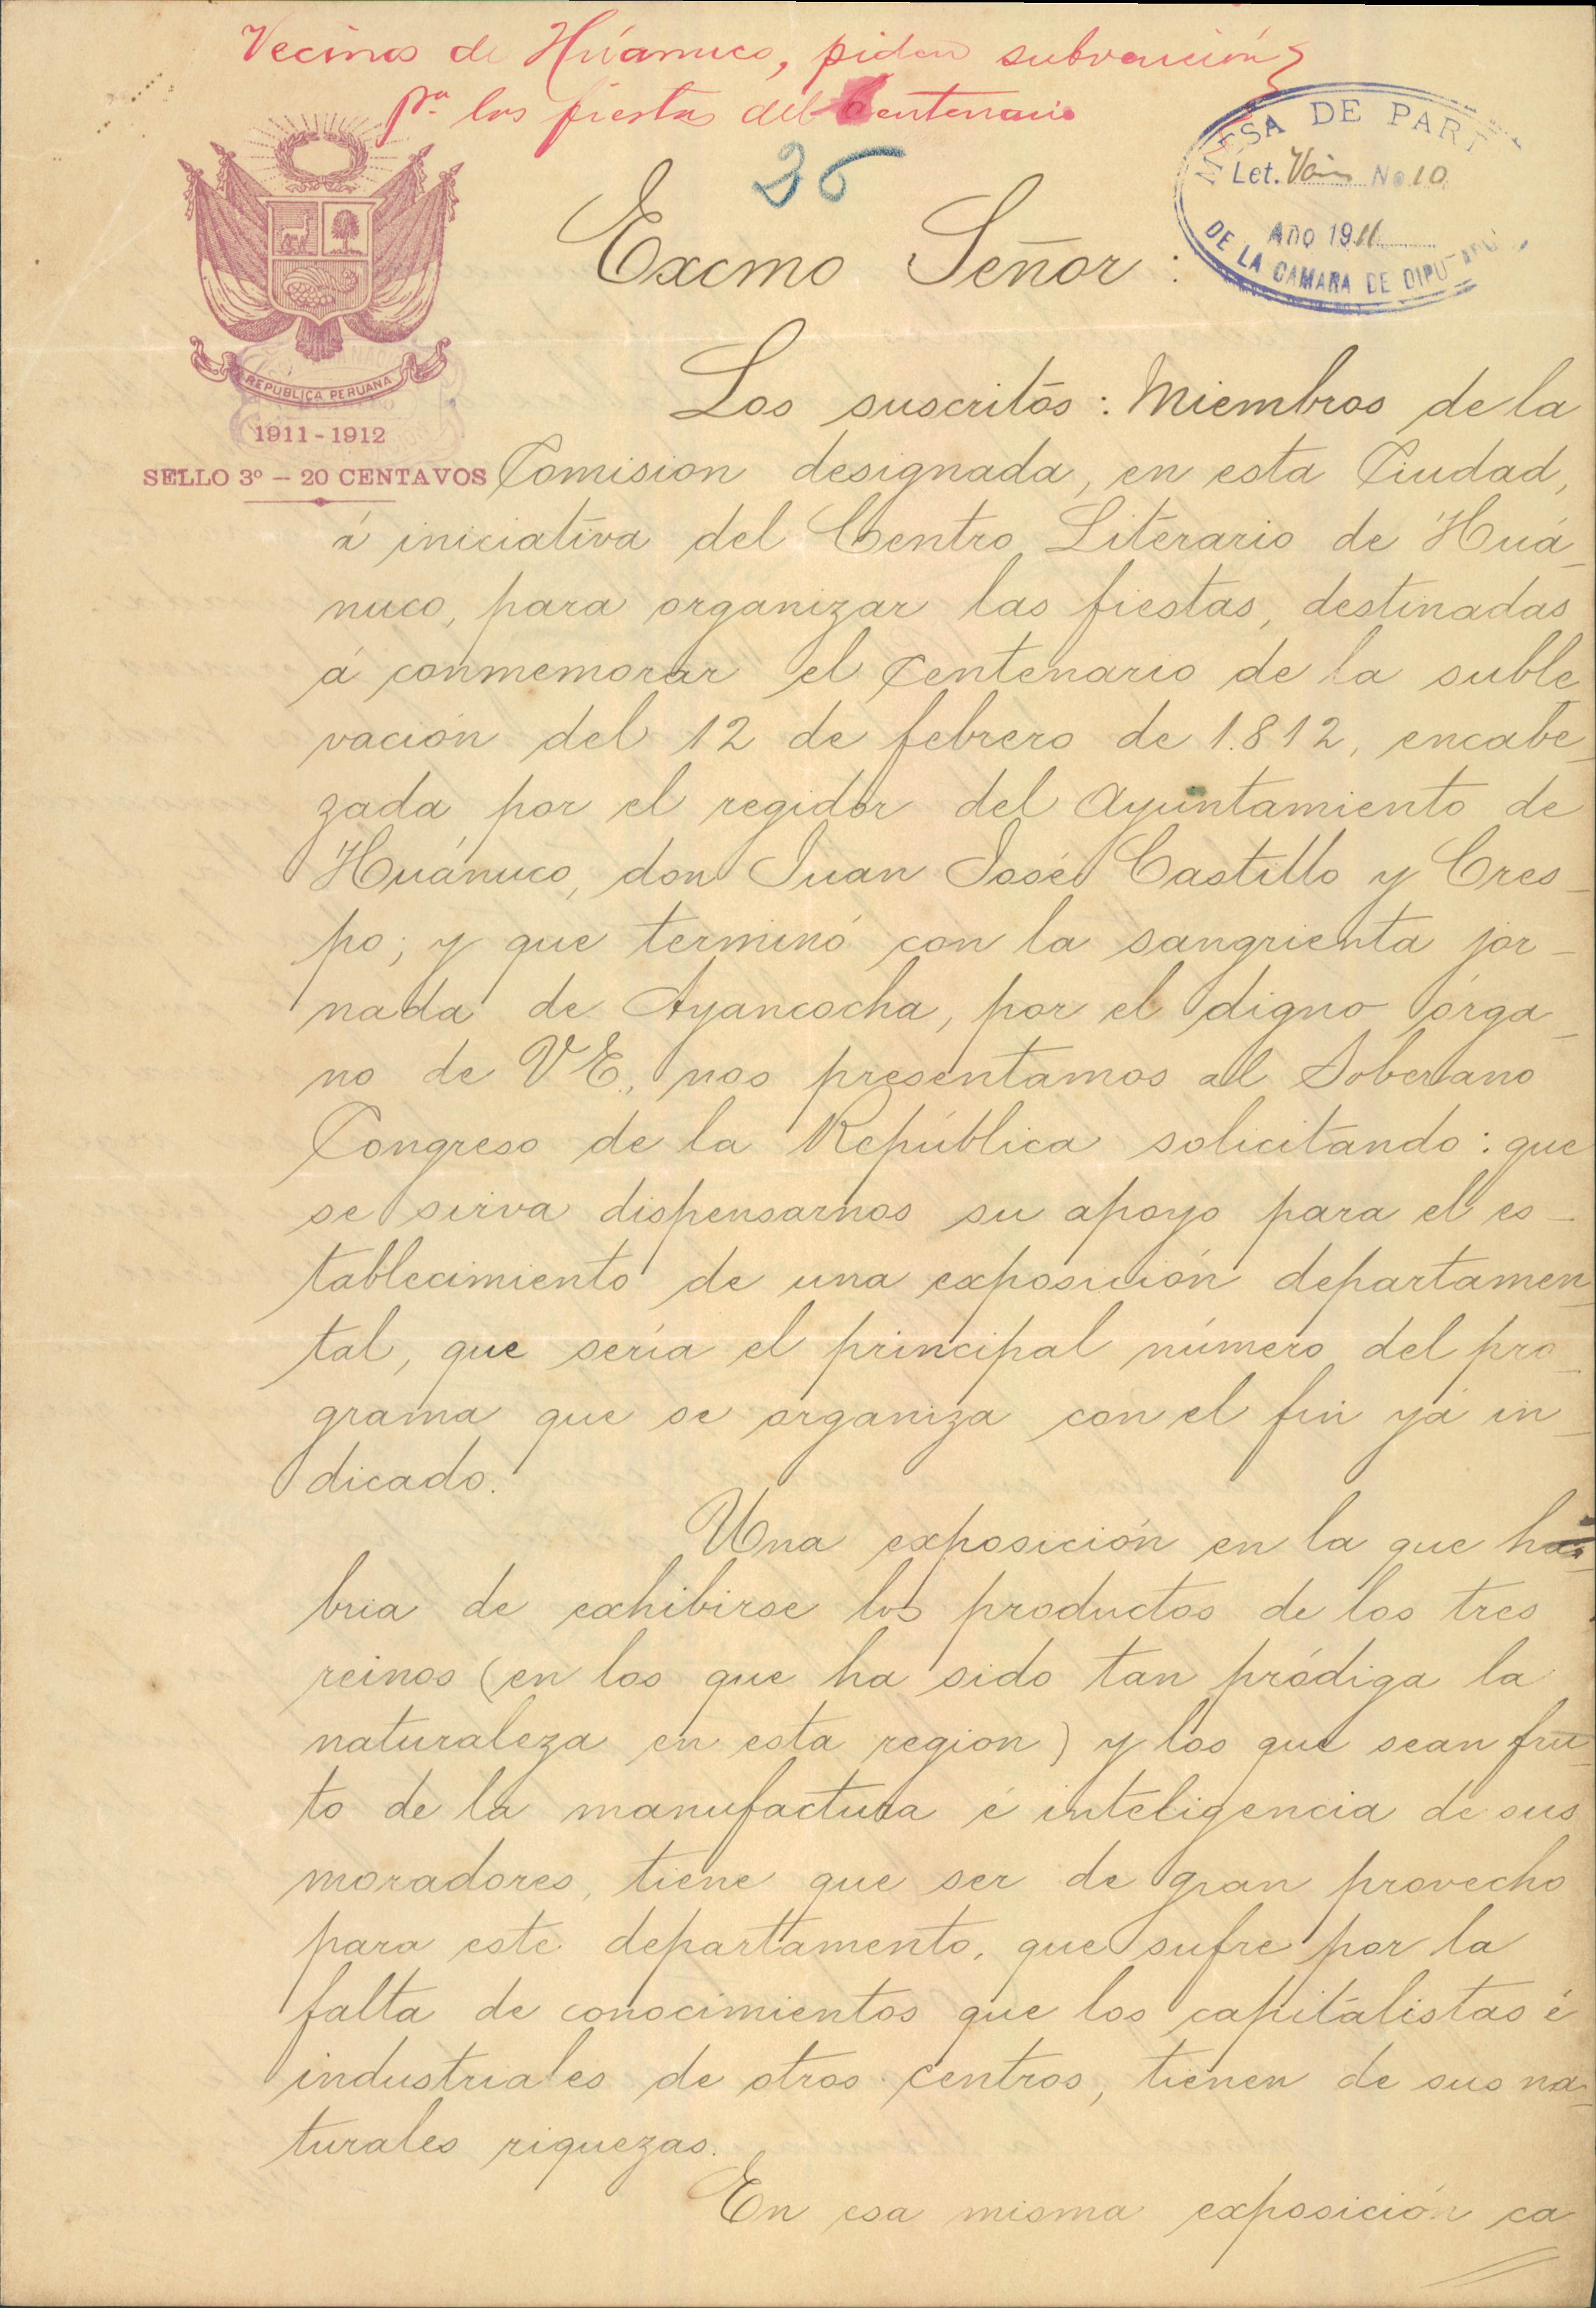 Vecinos de Húanuco, piden subvención
pª las fiestas del Centenario
36
MESA DE PART
Let. Varios No 10
Año 1911
DE LA CAMARA DE DIPUTADOS
Excmo Señor:
REPUBLICA PERUANA
1911-1912
SELLO 3º — 20 CENTAVOS
Los suscritos: Miembros de la
Comision designada, en esta Ciudad,
á iniciativa del Centro Literario de Huá-
nuco, para organizar las fiestas, destinadas
á conmemorar el Centenario de la suble-
vación del 12 de febrero de 1.812, encabe-
zada por el regidor del Ayuntamiento de
Huánuco, don Juan José Castillo y Cres-
po; y que terminó con la sangrienta jor-
nada de Ayancocha, por el digno órga-
no de VE., nos presentamos al Soberano
Congreso de la República solicitando: que
se sirva dispensarnos su apoyo para el es-
tablecimiento de una exposición departamen-
tal, que sería el principal número del pro-
grama que se organiza con el fin yá in-
dicado.
Una exposición en la que ha-
bria de exhibirse los productos de los tres
reinos (en los que ha sido tan pródiga la
naturaleza en esta region) y los que sean fru-
to de la manufactura é inteligencia de sus
moradores, tiene que ser de gran provecho
para este departamento, que sufre por la
falta de conocimientos que los capitalistas é
industriales de otros centros, tienen de sus na-
turales riquezas.
En esa misma exposición ca